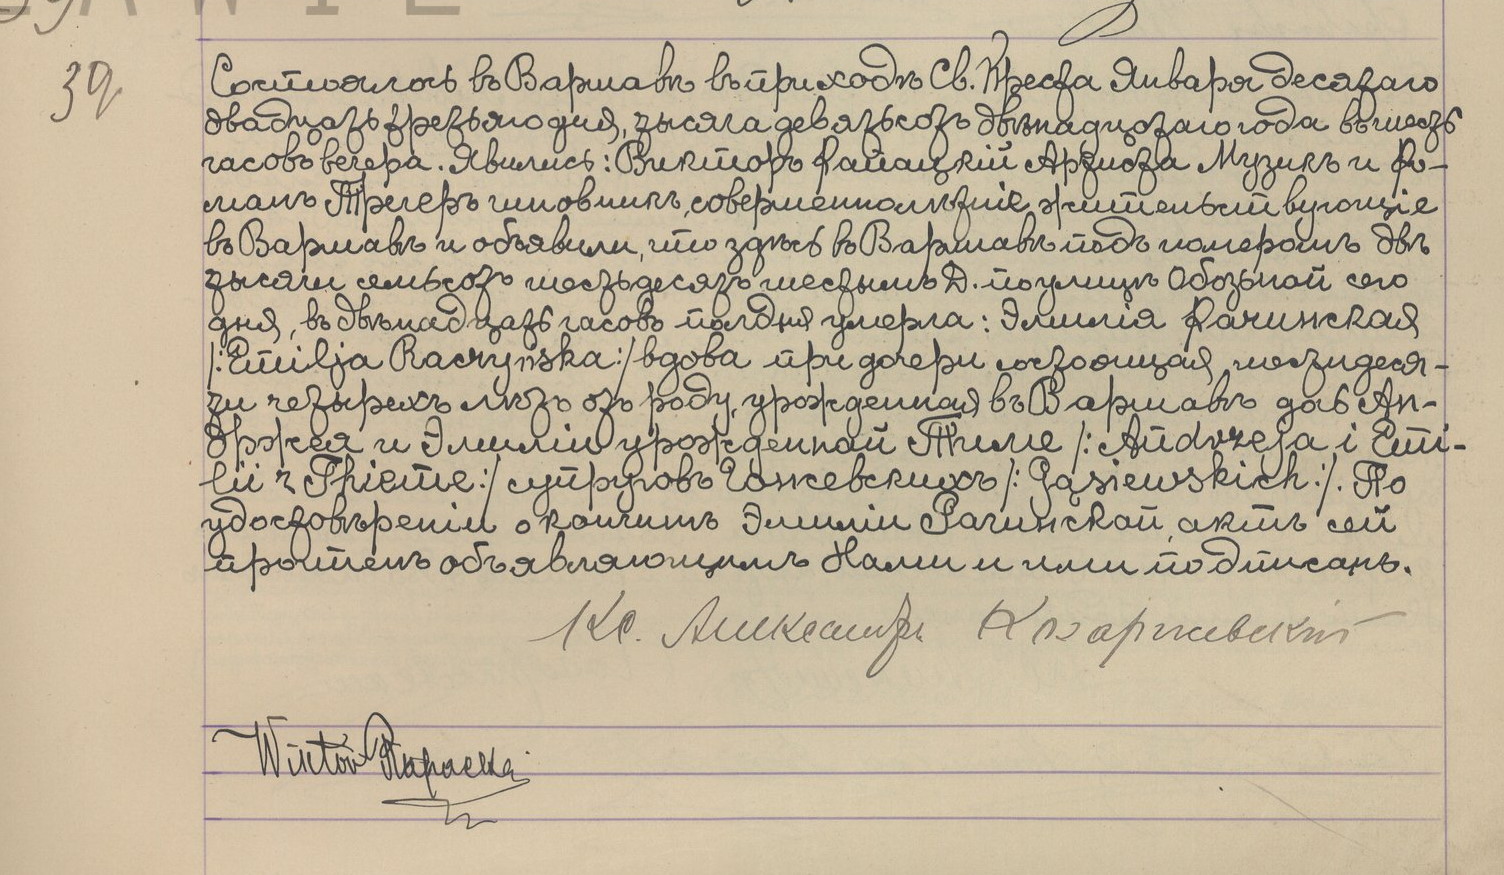 39
Состоялось въ Варшавѣ въ приходѣ Св. Креста Января десятаго
двадцать третьяго дня, тысяча девятьсотъ двѣнадцатаго года въ шесть
часовъ вечера. Явились: Викторъ Рапацкій Артиста Музикъ и Ро-
манъ Трегеръ чиновникъ, совершеннолѣтніе жительствующіе
въ Варшавѣ и объявили, что здѣсь въ Варшавѣ подъ номеромъ двѣ
тысячи семьсотъ шестьдесятъ шестымъ Д. по улицѣ Обозьной сего
дня, въ двѣнадцать часовъ полдня умерла: Эмилія Рачинская
/:Emilja Raczyńska:/ вдова при дочери состоящая, шестидеся-
ти четырехъ лѣтъ отъ роду, урожденная въ Варшавѣ дочь Ан-
држея и Эмиліи урожденной Тиме /: Andrzeja i Emi-
lii z Thieme:/ супруговъ Гонсевскихъ /: Gąsiewskich :/. По
удостовѣреніи о кончинѣ Эмиліи Рачинской, актъ сей
прочтенъ объявляющимъ Нами и ими подписанъ.
Кс. Александръ
Wiktor Rapacki